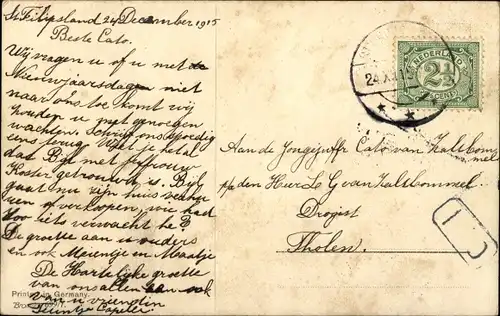 St Filipsland 24 December 1915
Beste Cato.
Wij vragen u of u met de
Nieuwjaarsdagen niet
naar ons toe komt wij
zouden u met genoegen
wachten. Schrijf ons spoedig
eens terug. Weet je het al
dat Bijl met juffrouw
Koster getrouwd is. Bijl
gaat nu zijn huis verhu
ren of verkopen, wie had
zoo iets verwacht he?
De groeten aan u ouders
en ook Meientje en Maatje
De Hartelijke groete
van ons allen aan ook
van u vriendin
Leuntje
Printed in Germany.
NEDERLAND
2½
CENT
24.
Aan de Jongejuffr Cato van Zaltbommel
p/a den Heer L G van Zaltbommel.
Drogist
Tholen.
1